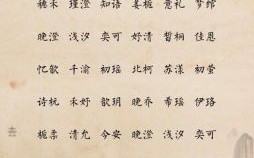 穗禾 瑾澄 知语 姜栀 意礼 梦绾
晚澄 浅汐 奕可 好清 晢桐 佳恩
忆歆 千渝 初瑶 北柯 苏漾 初萤
诗杭 禾妤 歆玥 晚乔 希瑶 伊珞
栀栗 清允 今安 晚澄 浅汐 奕可